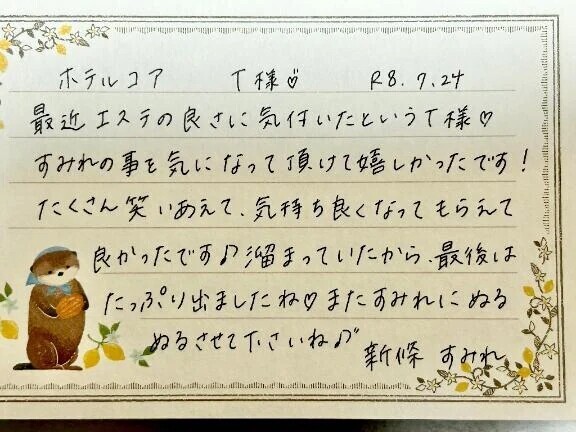 ホテルコア T様♡ R8.7.24
最近エステの良さに気付いたというT様♡
すみれの事を気になって頂けて嬉しかったです!
たくさん笑いあえて、気持ち良くなってもらえて
良かったです♪溜まっていたから、最後は
たっぷり出ましたね♡またすみれにぬる
ぬるさせて下さいね♪
新條 すみれ